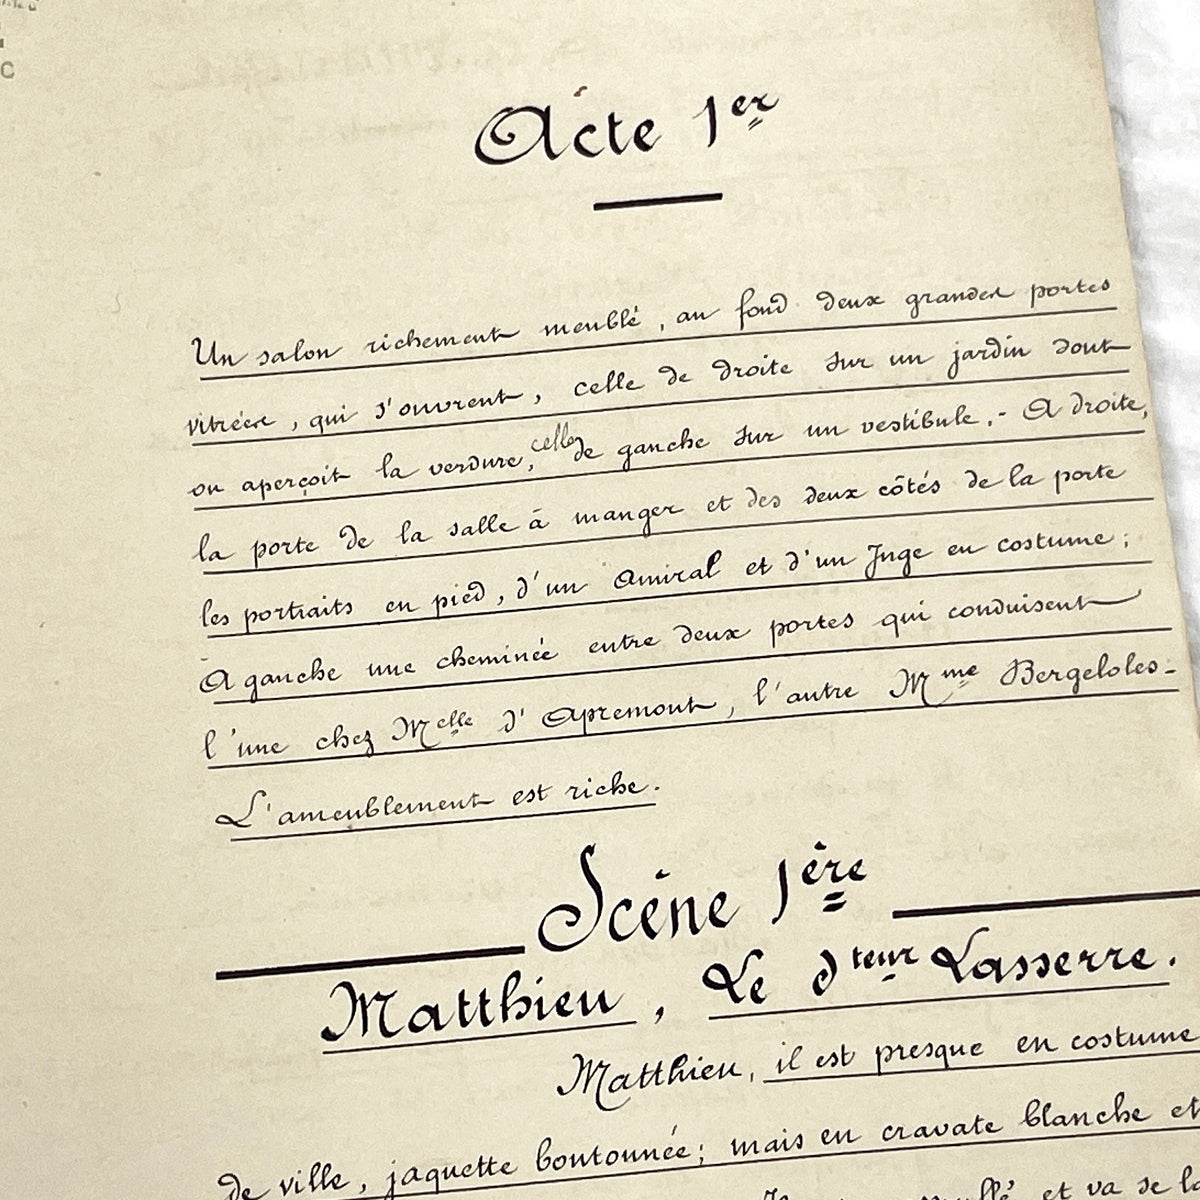 C
Acte 1er
Un salon richement meublé, au fond deux grandes portes
vitrées, qui s'ouvrent, celle de droite sur un jardin dont
on aperçoit la verdure, celle de gauche sur un vestibule.- A droite,
la porte de la salle à manger et des deux côtés de la porte
les portraits en pied, d'un Amiral et d'un Juge en costume;
A gauche une cheminée entre deux portes qui conduisent
l'une chez Melle d'Apremont, l'autre Mme Bergeloles-
L'ameublement est riche.
Scène 1ère
Matthieu, Le dteur Lasserre.
Matthieu, il est presque en costume
de ville, jaquette boutonnée; mais en cravate blanche et
et va se